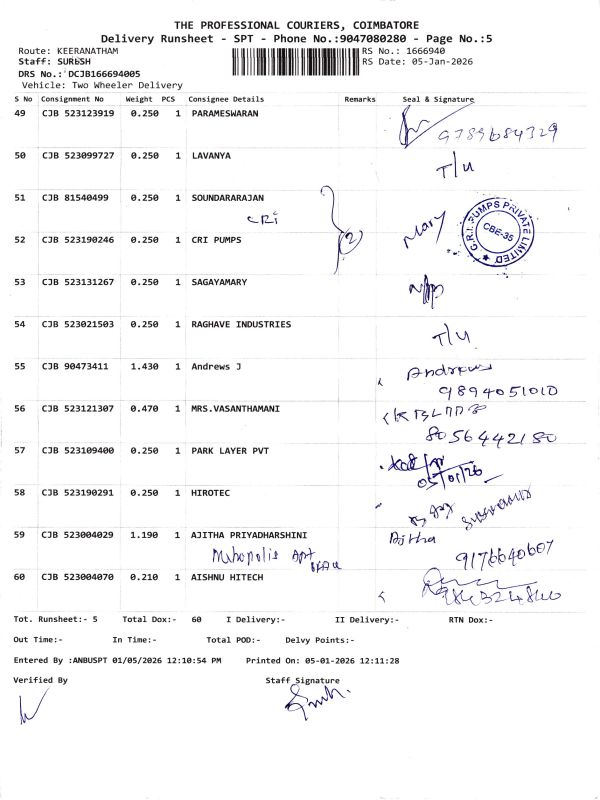 THE PROFESSIONAL COURIERS, COIMBATORE
Delivery Runsheet - SPT - Phone No.:9047080280 - Page No.:5
Route: KEERANATHAM RS No.: 1666940
Staff: SURESH RS Date: 05-Jan-2026
DRS No.: DCJB166694005
Vehicle: Two Wheeler Delivery
S No Consignment No Weight PCS Consignee Details Remarks Seal & Signature
49 CJB 523123919 0.250 1 PARAMESWARAN
9789684329
50 CJB 523099727 0.250 1 LAVANYA T/U
51 CJB 81540499 0.250 1 SOUNDARARAJAN
CRI (2) Mary
C.R.I. PUMPS PRIVATE LIMITED CBE-35
52 CJB 523190246 0.250 1 CRI PUMPS
53 CJB 523131267 0.250 1 SAGAYAMARY
54 CJB 523021503 0.250 1 RAGHAVE INDUSTRIES T/U
55 CJB 90473411 1.430 1 Andrews J Andrews
9894051010
56 CJB 523121307 0.470 1 MRS.VASANTHAMANI
8056442180
57 CJB 523109400 0.250 1 PARK LAYER PVT
05/01/26
58 CJB 523190291 0.250 1 HIROTEC
59 CJB 523004029 1.190 1 AJITHA PRIYADHARSHINI Ajitha
Apt 9176640607
60 CJB 523004070 0.210 1 AISHNU HITECH
Tot. Runsheet:- 5 Total Dox:- 60 I Delivery:- II Delivery:- RTN Dox:-
Out Time:- In Time:- Total POD:- Delvy Points:-
Entered By :ANBUSPT 01/05/2026 12:10:54 PM Printed On: 05-01-2026 12:11:28
Verified By Staff Signature